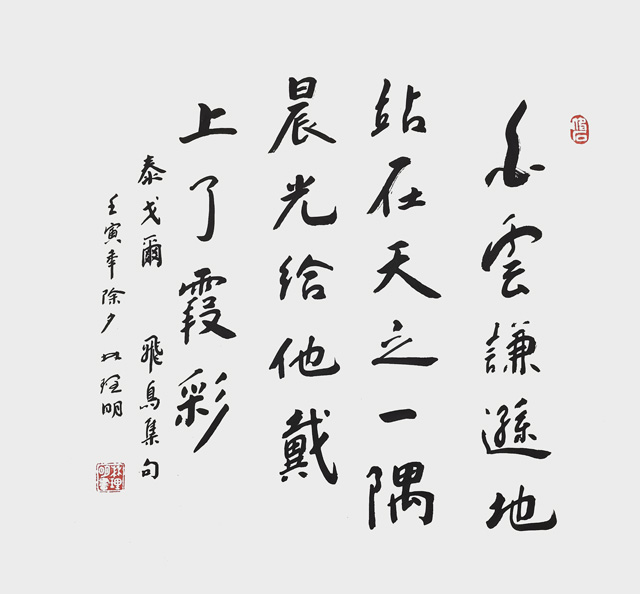 白雲謙遜地
站在天之一隅
晨光給他戴
上了霞彩
泰戈爾 飛鳥集句
壬寅年除夕 理明